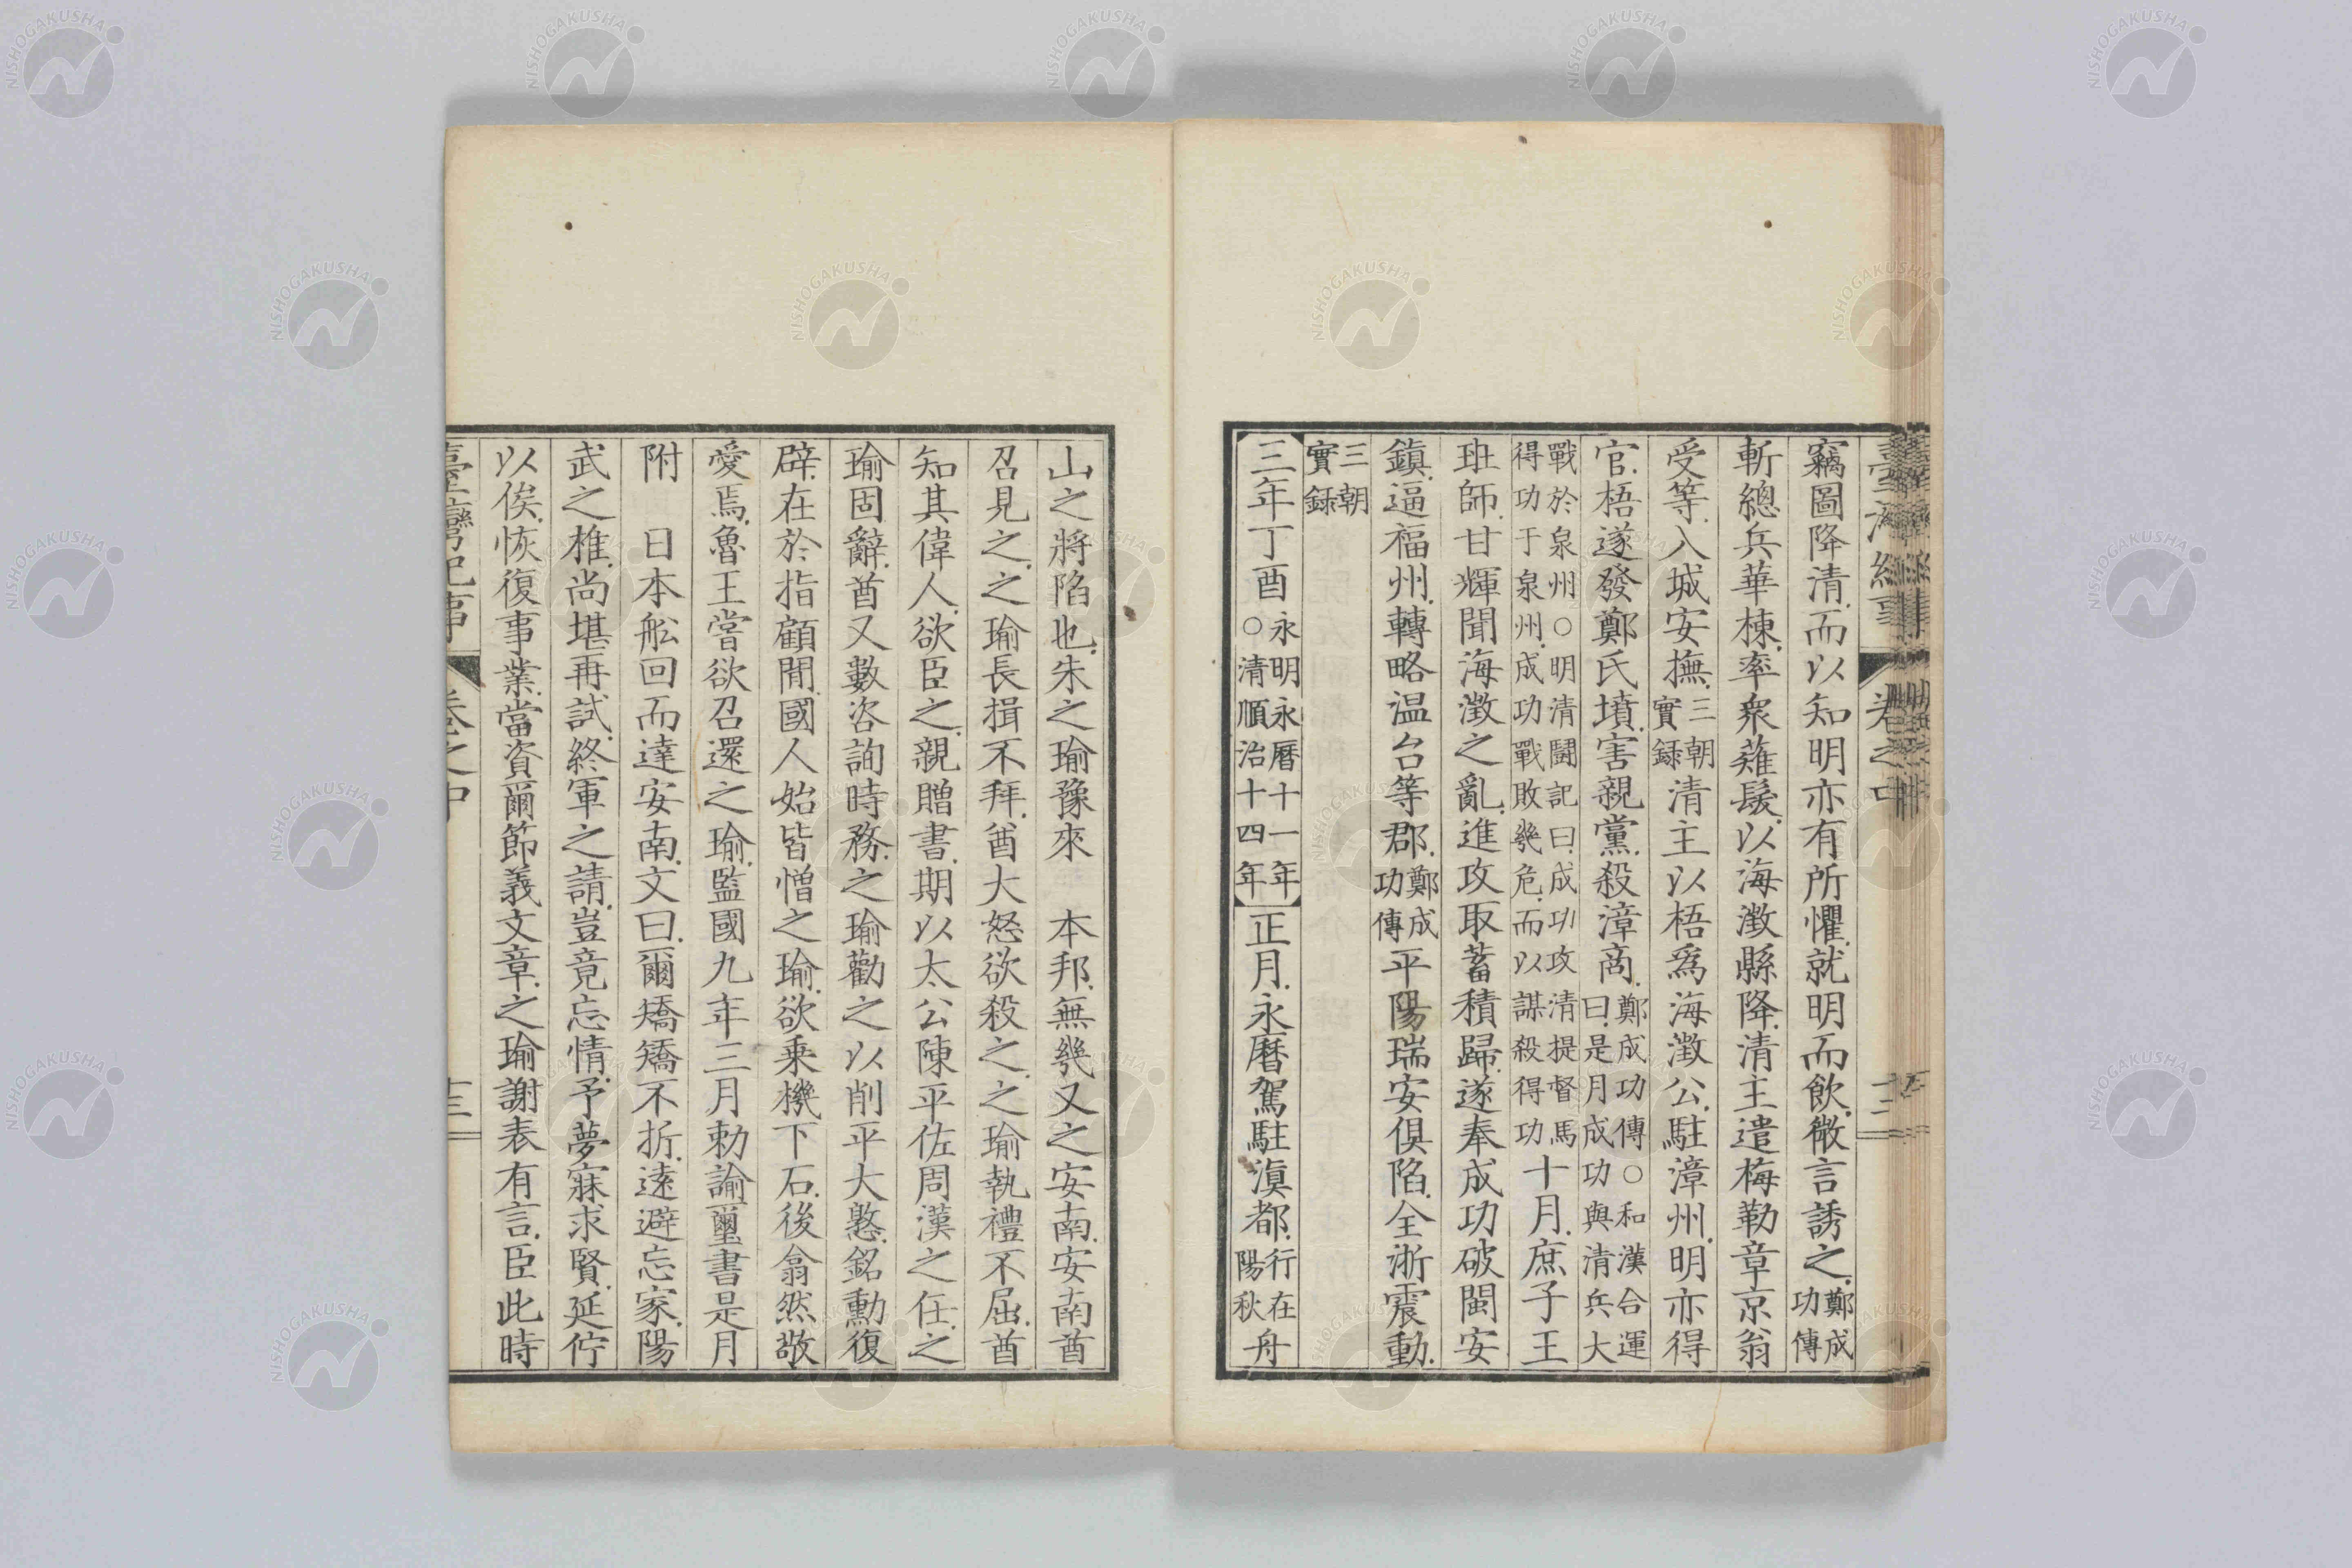 竊圖降清.而以知明亦有所懼.就明而飲.微言誘之.鄭成功傳
斬總兵華棟.率眾薙髮.以海澂縣降.清主遣梅勒章京翁
受等.入城安撫.三朝實録清主以梧爲海澂公.駐漳州.明亦得
官.梧遂發鄭氏墳.害親黨.殺漳商.鄭成功傳○和漢合運曰.是月成功與清兵大
戰於泉州○明清鬪記曰.成功攻清提督馬得功于泉州.成功戰敗幾危.而以謀殺得功十月.庶子王
班師.甘輝聞海澂之亂.進攻取蓄積歸.遂奉成功破閩安
鎮.逼福州.轉略温台等郡.鄭成功傳平陽瑞安俱陷.全浙震動.
三朝實録
三年丁酉○永明永曆十一年清順治十四年正月.永曆駕駐滇都.行在陽秋舟
山之將陷也.朱之瑜豫來 本邦.無幾又之安南.安南酋
召見之.之瑜長揖不拜.酋大怒欲殺之.之瑜執禮不屈.酋
知其偉人.欲臣之.親贈書.期以太公陳平佐周漢之任.之
瑜固辭.酋又數咨詢時務.之瑜勸之以削平大憝.銘勳復
辟.在於指顧閒.國人始皆憎之瑜.欲乗機下石.後翕然敬
愛焉.魯王嘗欲召還之瑜.監國九年三月勅諭璽書是月
附 日本舩回而達安南.文曰.爾矯矯不折.遠避忘家.陽
武之椎.尚堪再試.終軍之請.豈竟忘情.予夢寐求賢.延佇
以俟.恢復事業.當資爾節義文章.之瑜謝表有言.臣此時
臺灣紀事 卷之中 十三